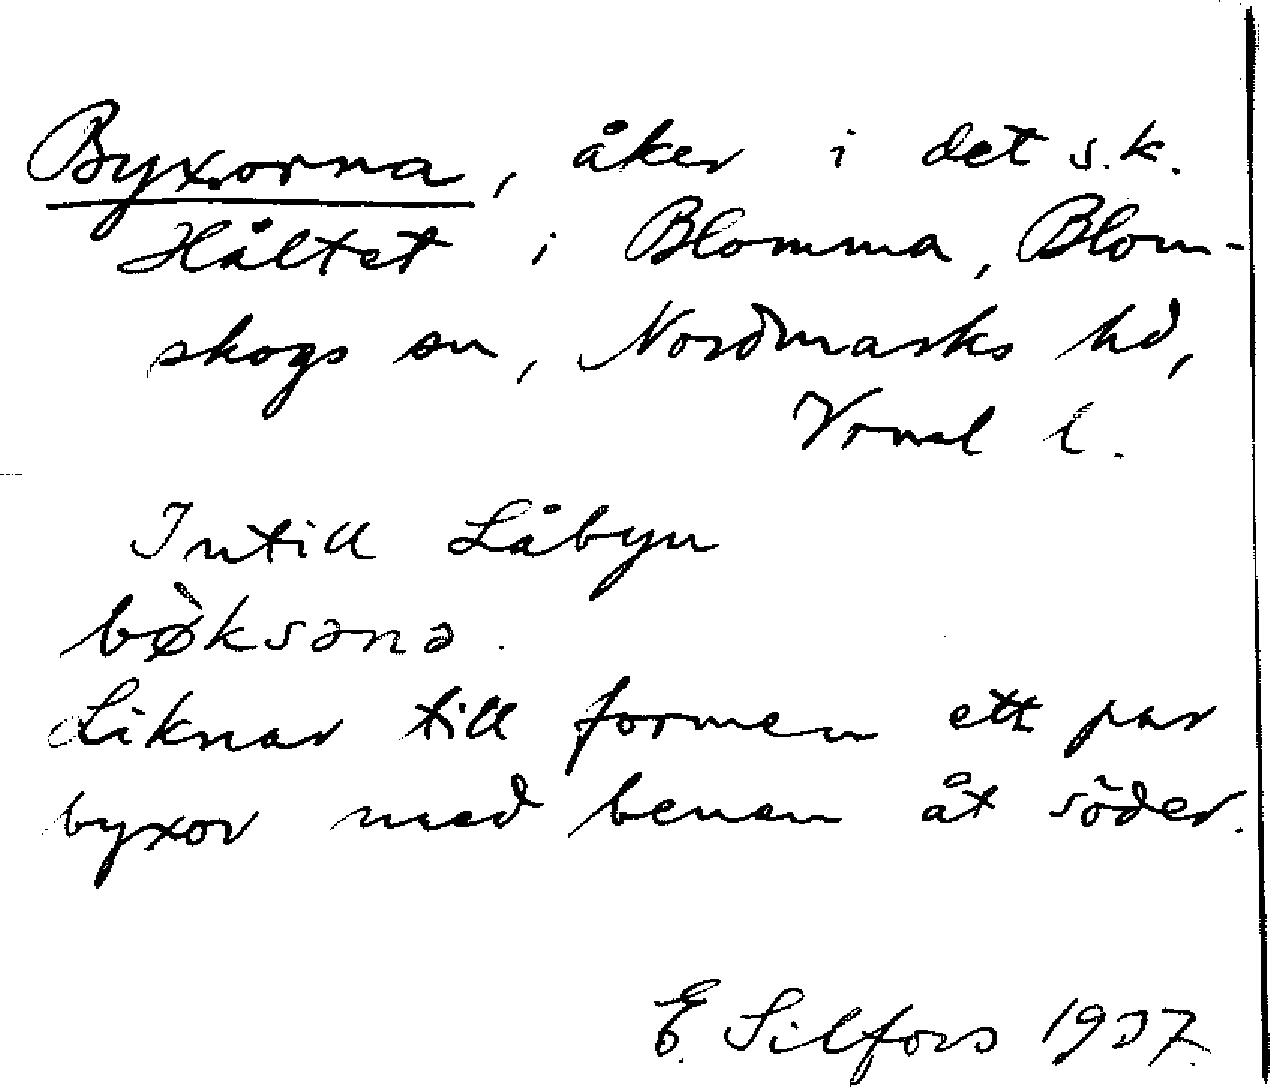 Byxorna, åker i det s.k.
Håltet i Blomma, Blom-
skogs sn, Nordmarks hd,
Vrml l.
Intill Låbyn
bø̀ksənə.
Liknar till formen ett par
byxor med benen åt söder.
E. Silfors 1937.